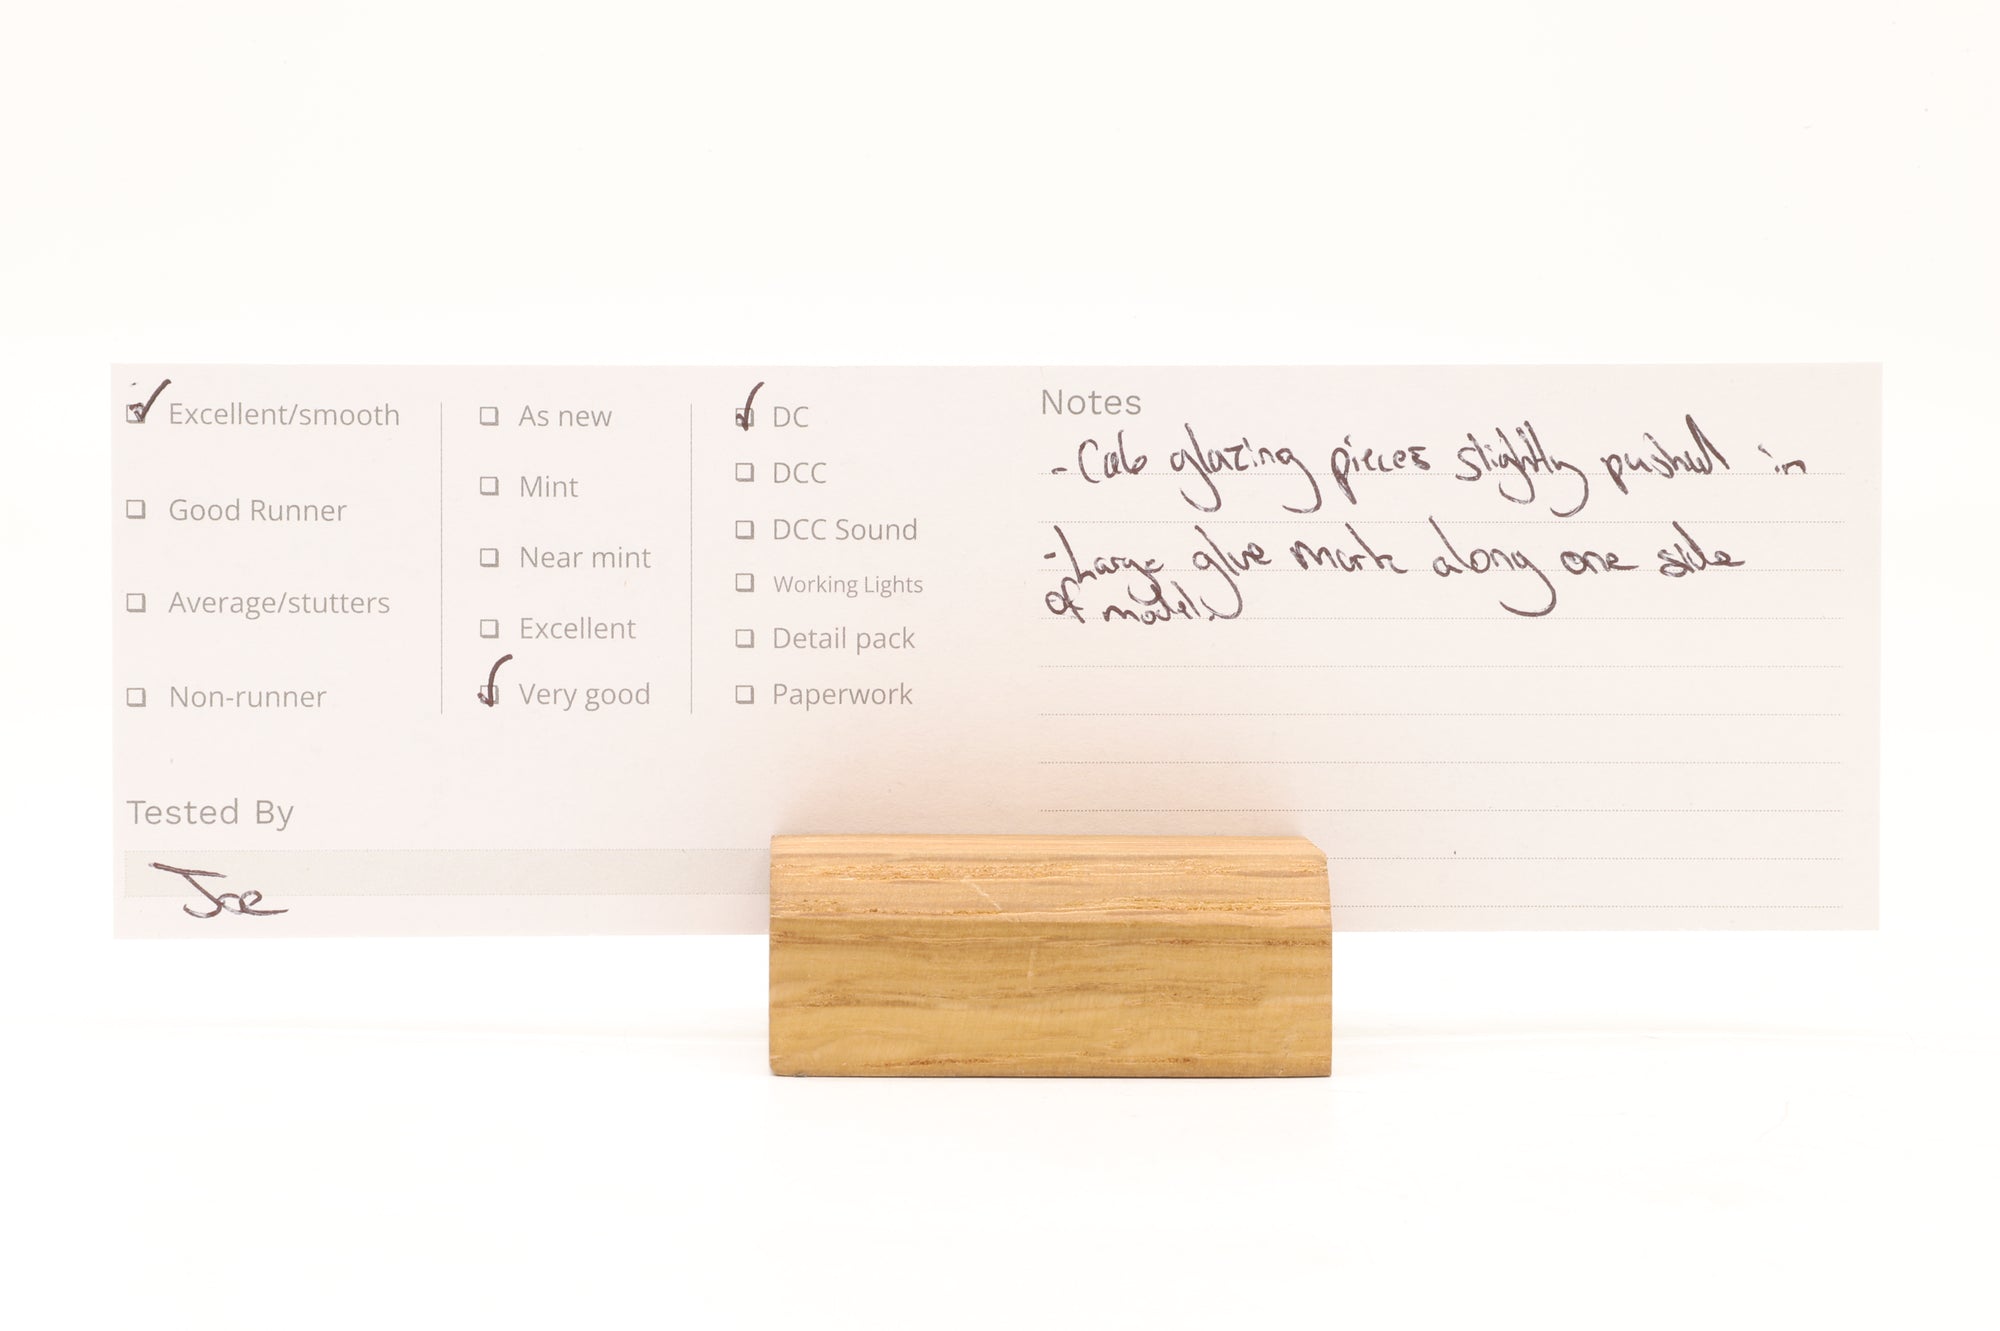 Excellent/smooth
Good Runner
Average/stutters
Non-runner
As new
Mint
Near mint
Excellent
Very good
DC
DCC
DCC Sound
Working Lights
Detail pack
Paperwork
Tested By
Joe
Notes
- Cab glazing pieces slightly pushed in
- Large glue mark along one side
of model